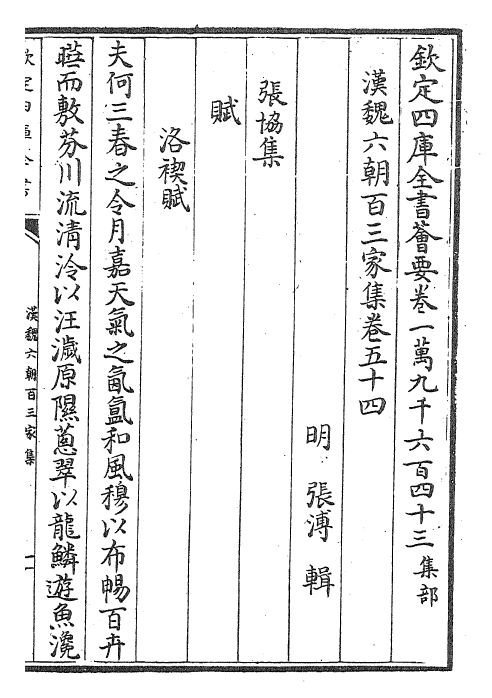 欽定四庫全書薈要卷一萬九千六百四十三集部
漢魏六朝百三家集卷五十四
明 張溥 輯
張協集
賦
洛禊賦
夫何三春之令月嘉天氣之氤氳和風穆以布暢百卉
曄而敷芬川流清泠以汪濊原隰蔥翠以龍鱗遊魚瀺
欽定四庫全書
漢魏六朝百三家集
一